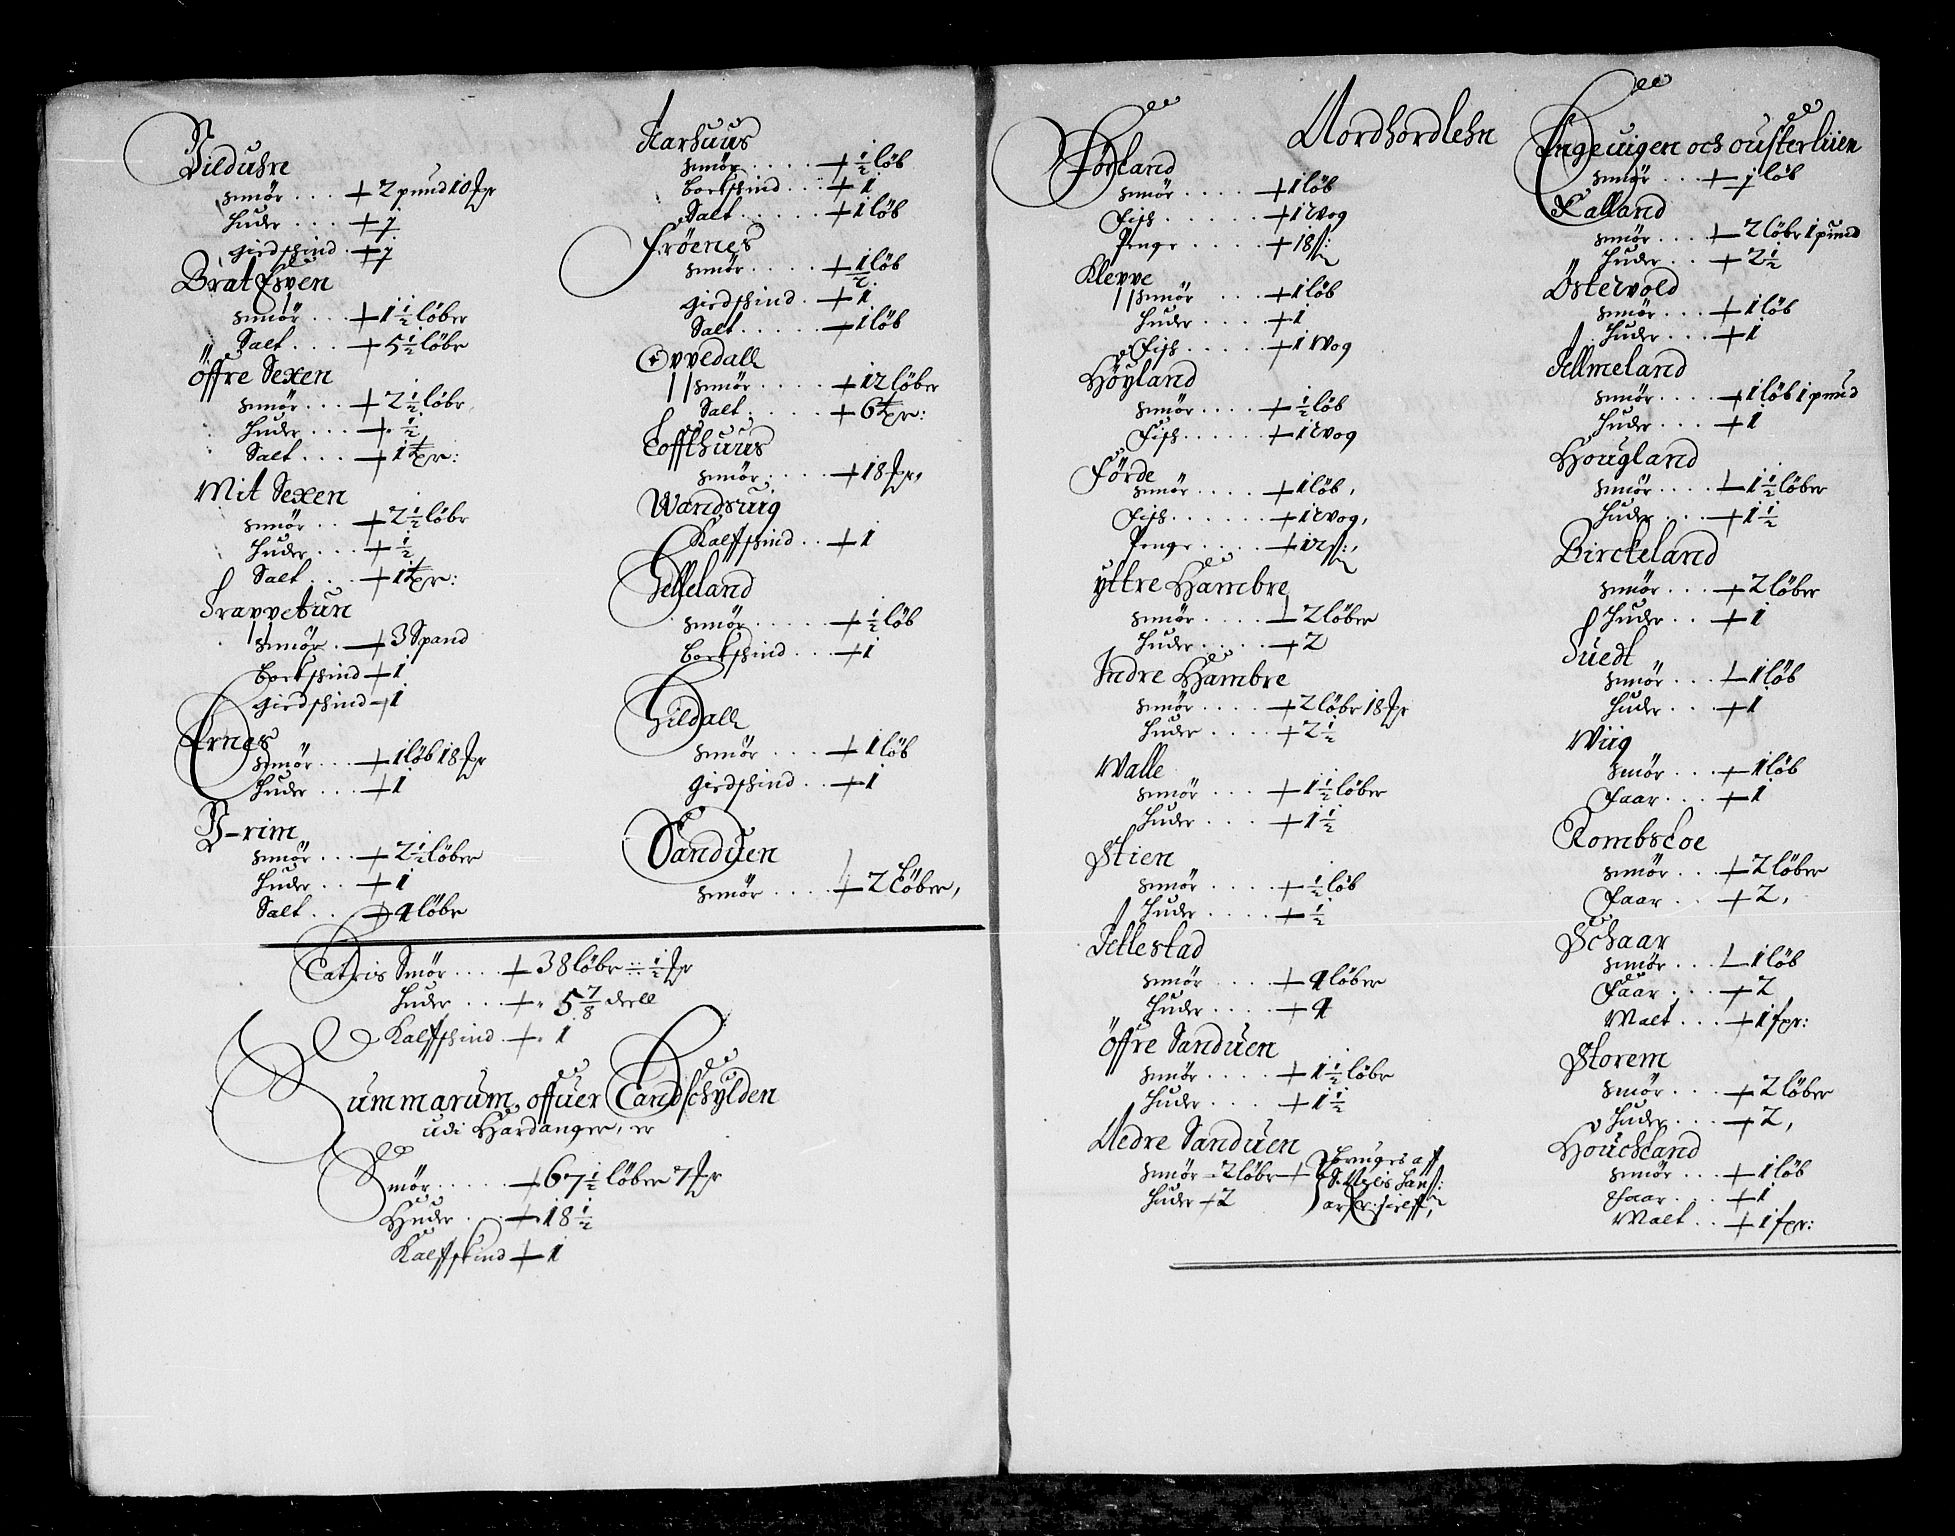 Vilduhn
smör .... 2 pund 10
huder .... j
giedschind . j
Brat Espen
smör ... 1 1/2 löber
Salt ... 5 1/2 löbr
öffre Sexen
smör ... 2 1/2 löbr
huder ... 1/2
Salt ... 1 tpr:
Mit Sexen
smör .. 2 1/2 löbr
huder ... 1/2
Salt ... 1 tpr:
Trappetun
smör . 3 Spand
bockschind 1
giedschind 1
Ernes
smör ... 1 löb 18
huder ... 1
smör ... 2 1/2 löber
huder .. 1
Salt .. 4 löbr
Aarhuus
smör .... 1/2 löb
bockschind ... 1
Salt ..... 1 löb
Fröenes
smör ..... 1/2 löb
giedschind . 1
Salt ..... 1 löb
Oppedall
smör .... 12 löber
Salt .... 6 tpr:
Toffthuus
smör .... 18
Kalffschind .. 1
Helleland
smör ..... 1/2 löb
bockschind ... 1
Hildall
smör .... 1 löb
giedschind .. 1
Sanduen
smör .... 2 Löber,
Latris Smör .... 38 löbr 1/2
huder ... 5 7/8 deell
Kalffschind .. 1
Summarum offuer Landschylden
udi Hardanger, er
Smör ..... 67 1/2 löber 7
Huder ... 18 1/2
Kalffskind 1
Nordhordlehn
Förland
smör ..... 1 löb
Fisch ...... 1 wog
Penge ..... 18 ß:
Kleppe
smör .... 1 löb
huder .... 1
Fisch ..... 1 wog
Höyland
smör .... 1/2 löb
Fisch ..... 1 wog
Förde
smör .... 1 löb,
Fisch ...... 1 wog,
Penge ..... 12 ß:,
yttre Hambre
smör .... 2 löber
huder ..... 2
Indre Hambre
smör .... 2 löbr 18
huder .... 2 1/2
Walle
smör .... 1 1/2 löber
huder .... 1 1/2
Stien
smör .... 1/2 löb
huder .... 1/2
Tellestad
smör .... 4 löber
huder .... 4
öffre Sanduen
smör .... 1 1/2 löbr
huder .... 1 1/2
Nedre Sanduen
smör 2 löbr
huder 2
bruges aff
Engeuigen och ousterliien
smör ... j löb
Kalland
smör .... 2 löbr 1 pund
huder .. 2 1/2
Östervold
smör ... 1 löb
huder ... 1
Tellmeland
smör .... 1 löb 1 pund
huder ... 1
Hougland
smör .... 1 1/2 löber
huder ... 1 1/2
Birckeland
smör ... 2 löber
huder .. 1
Tuedt
smör ... 1 löb
huder ... 1
Wiig
smör ... 1 löb
Faar ... 1
Rombsloe
smör ... 2 löber
Faar .. 2,
Schaar
smör ... 1 löb
Faar ... 2
Malt ... 1 fpr:
Storem
smör ... 2 löber
huder ... 2,
Houchland
smör ... 1 löb
Faar ... 1
Malt .. 1 fpr: